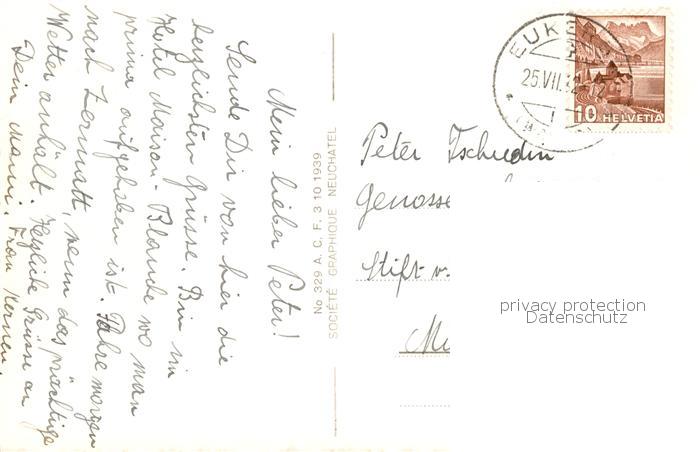 Mein lieber Peter!
Sende Dir von hier die
herzlichsten Grüsse. Bin im
Hotel Maison-Blanche wo man
prima aufgehoben ist. Fahre morgen
nach Zermatt, wenn das prächtige
Wetter anhält. Herzliche Grüsse an
Dein Mami. Frau Kernen.
No 329 A. C. F. 3 10 1939
SOCIÉTÉ GRAPHIQUE NEUCHATEL
25.VII.
10 HELVETIA
Peter Tschudin
Genosse
Stift v.
privacy protection
Datenschutz